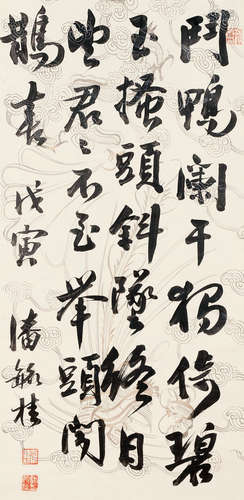 鬥鴨闌干獨倚碧
玉搔頭斜墜終日
望君君不至舉頭聞
鵲喜戊寅潘毓桂